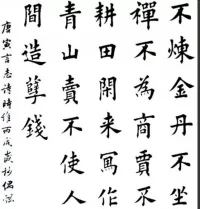 不煉金丹不坐
禪不為商賈不
耕田閑来寫作
青山賣不使人
間造孽錢
唐寅言志詩時維丙戌歲杪